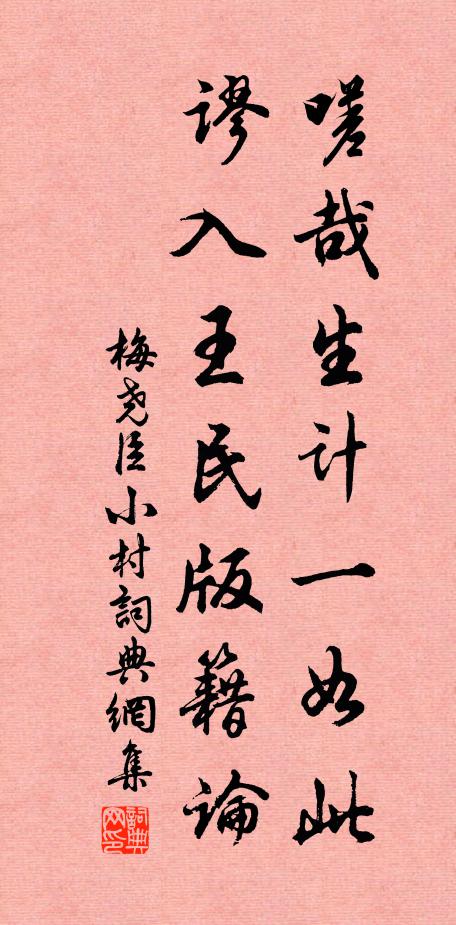 嗟哉生计一如此
谬入王民版籍论
梅尧臣小村詞典網集
詞典网印